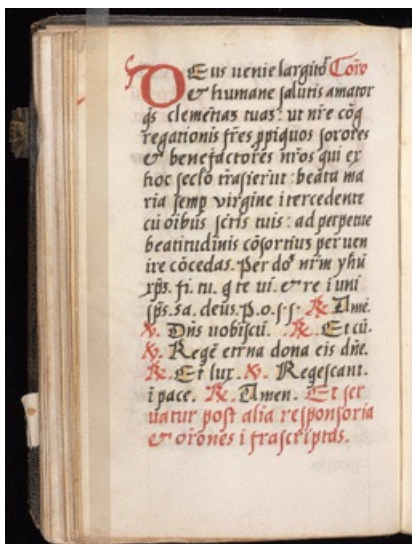 DEus uenie largitõ Corõ
& humane salutis amator
q̃s clemẽtiaz tuaz: ut nr̃e cõg
regationis fr̃es ꝓpiquos sorores
& benefactores nr̃os qui ex
hoc seclo trãsierũt: beata ma
ria semp uirgine ĩtercedente
cũ oĩbus sc̃tis tuis: ad perpetue
beatitudinis cõsortiuz peruen
ire cõcedas. Per dõ nr̃m yhũ
xp̃s. fi. tu. q te ui. & re i uni
sp̃s. sa. deus. p. o. s. s. ℟. Amẽ.
℣. Dñs uobiscũ. ℟. Et cũ.
℣. Regẽ etrna dona eis dñe.
℟. Et lux. ℣. Reqescant.
i pace. ℟. Amen. Et ser
uatur post alia responsoria
& or̃ones i frascriptas.